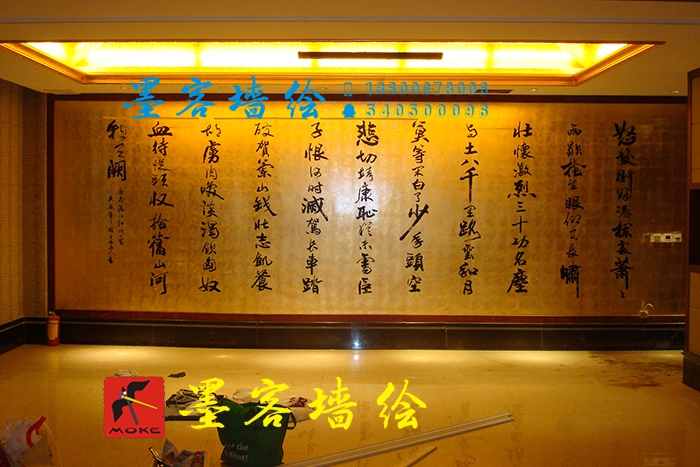 墨客墙绘
怒髮衝冠憑欄處蕭〻
雨歇抬望眼仰天長嘯
壯懷激烈三十功名塵
与土八千里路雲和月
莫等闲白了少年頭空
悲切靖康恥猶未雪臣
子恨何时滅駕長車踏
破賀蘭山缺壯志飢餐
胡虜肉笑談渴飲匈奴
血待從頭收拾舊山河
朝天闕
MOKE
墨客墙绘